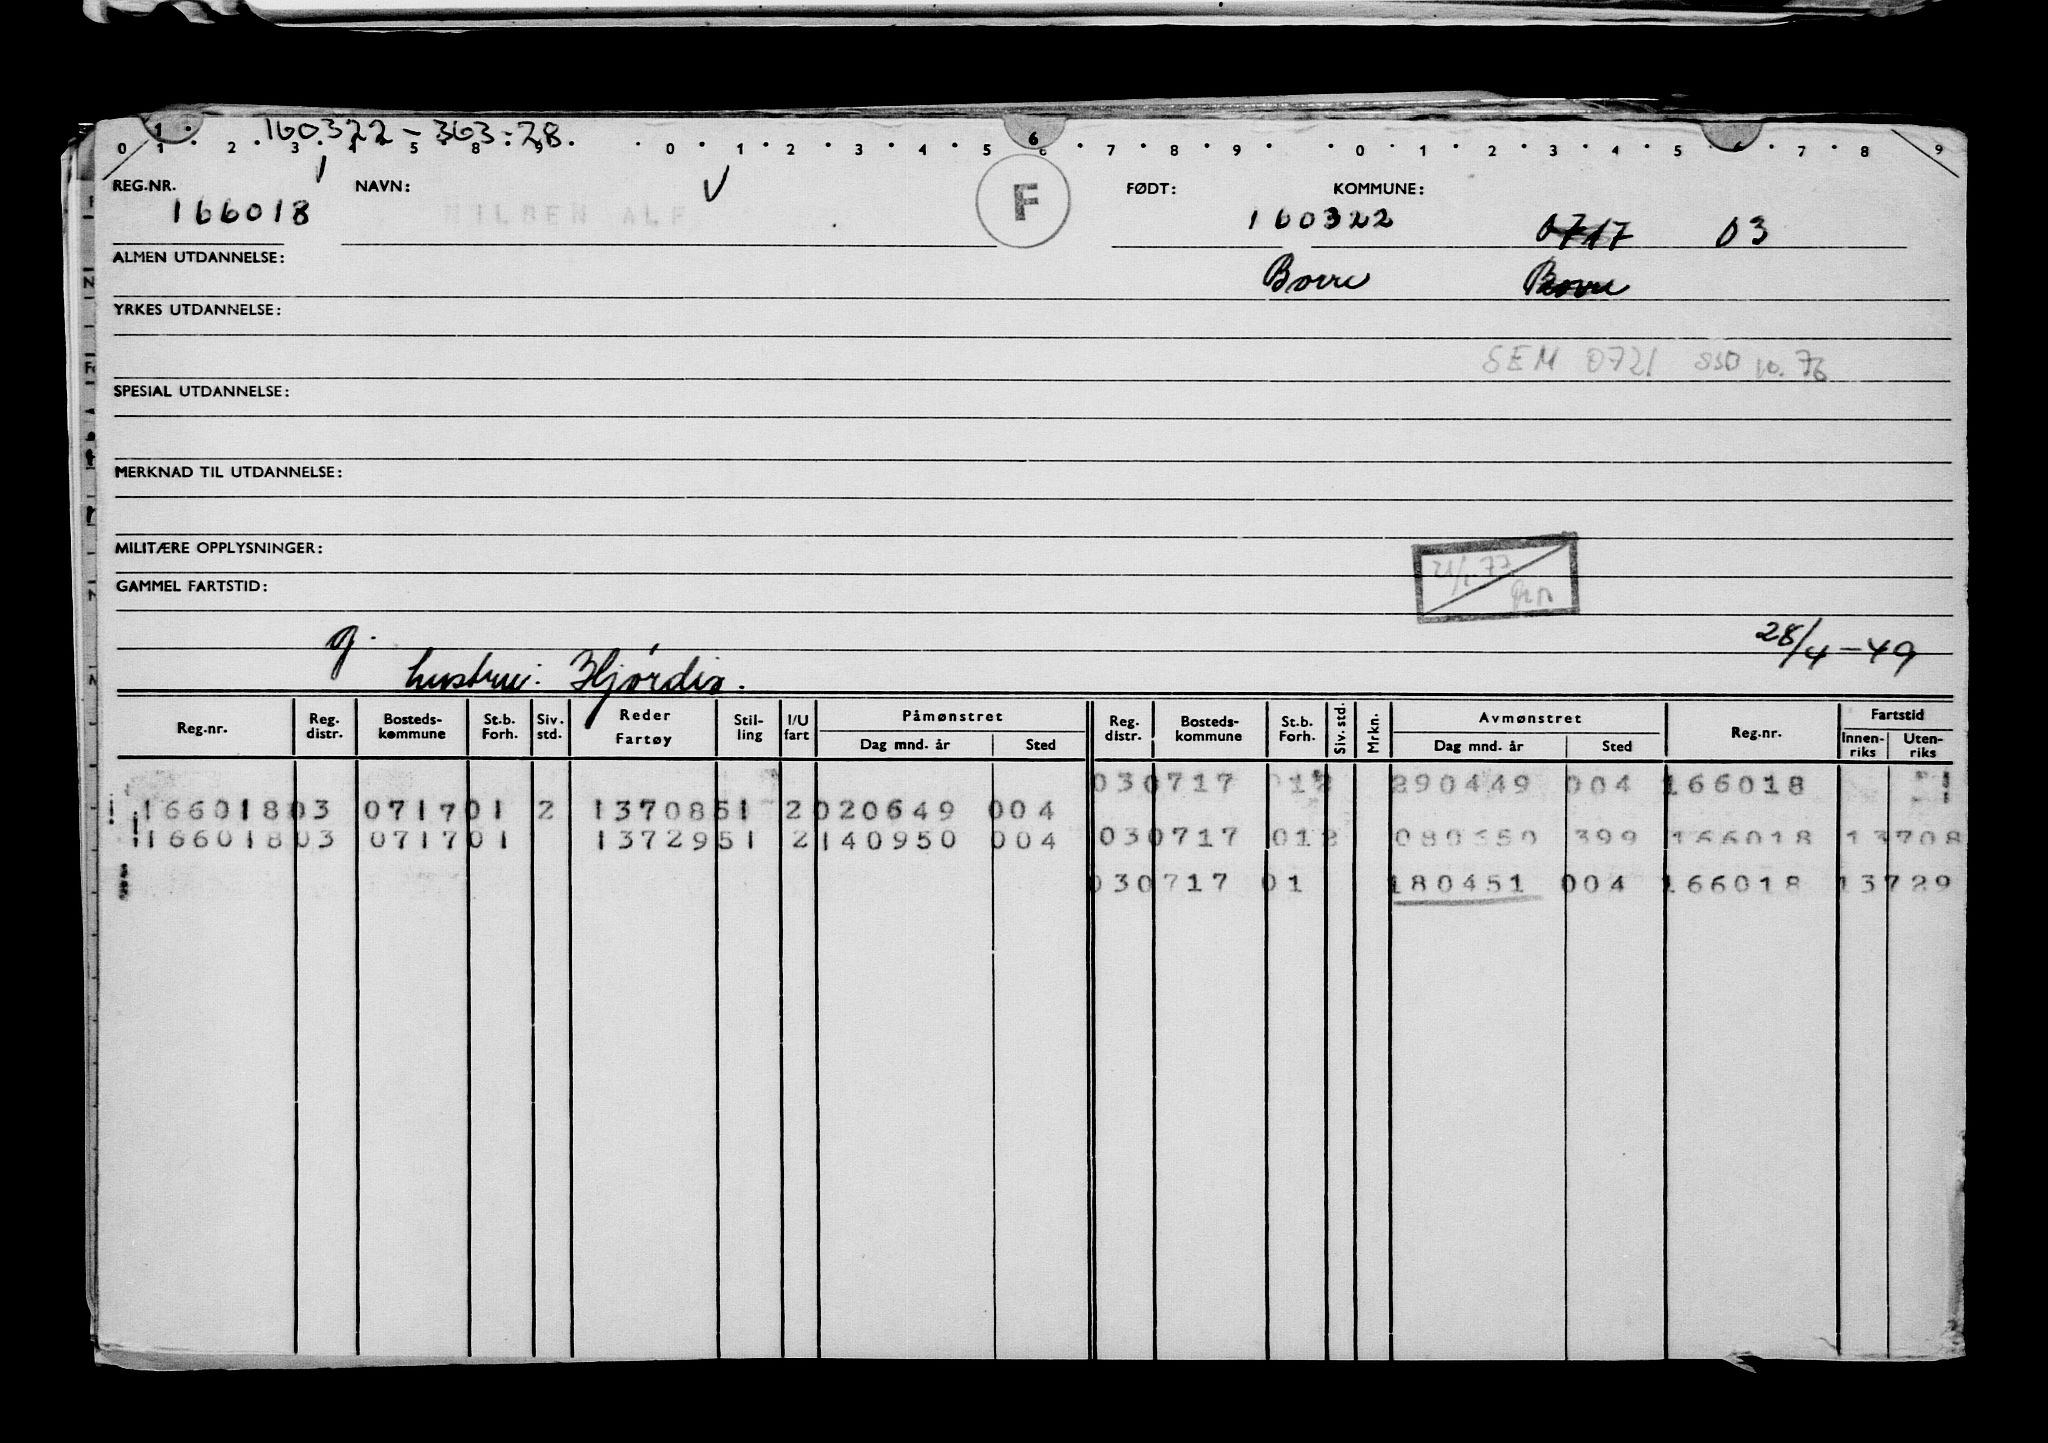 160322 - 363 - 28.
0 1 2 3 4 5 8 9 0 1 2 3 4 5 6 7 8 9 0 1 2 3 4 5 6 7 8 9
REG.NR. NAVN: F FØDT: KOMMUNE:
166018 NILSEN ALF 160322 0717 03
ALMEN UTDANNELSE: Borre Borre
YRKES UTDANNELSE:
SEM 0721 SSD 10.76
SPESIAL UTDANNELSE:
MERKNAD TIL UTDANNELSE:
MILITÆRE OPPLYSNINGER:
21/1.77
GAMMEL FARTSTID:
g. 28/4-49
hustrui: Hjørdis.
Reg.nr. Reg. distr. Bosteds-kommune St.b. Forh. Siv. std. Reder Fartøy Stil-ling I/U fart Påmønstret Dag mnd. år Sted Reg. distr. Bosteds-kommune St.b. Forh. Siv. std. Mrkn. Avmønstret Dag mnd. år Sted Reg.nr. Fartstid Innen-riks Uten-riks
030717 012 290449 004 166018
16601803 071701 2 1370851 2020649 004
16601803 071701 1372951 2140950 004 030717 012 080550 399 166018 13708
030717 01 180451 004 166018 13729